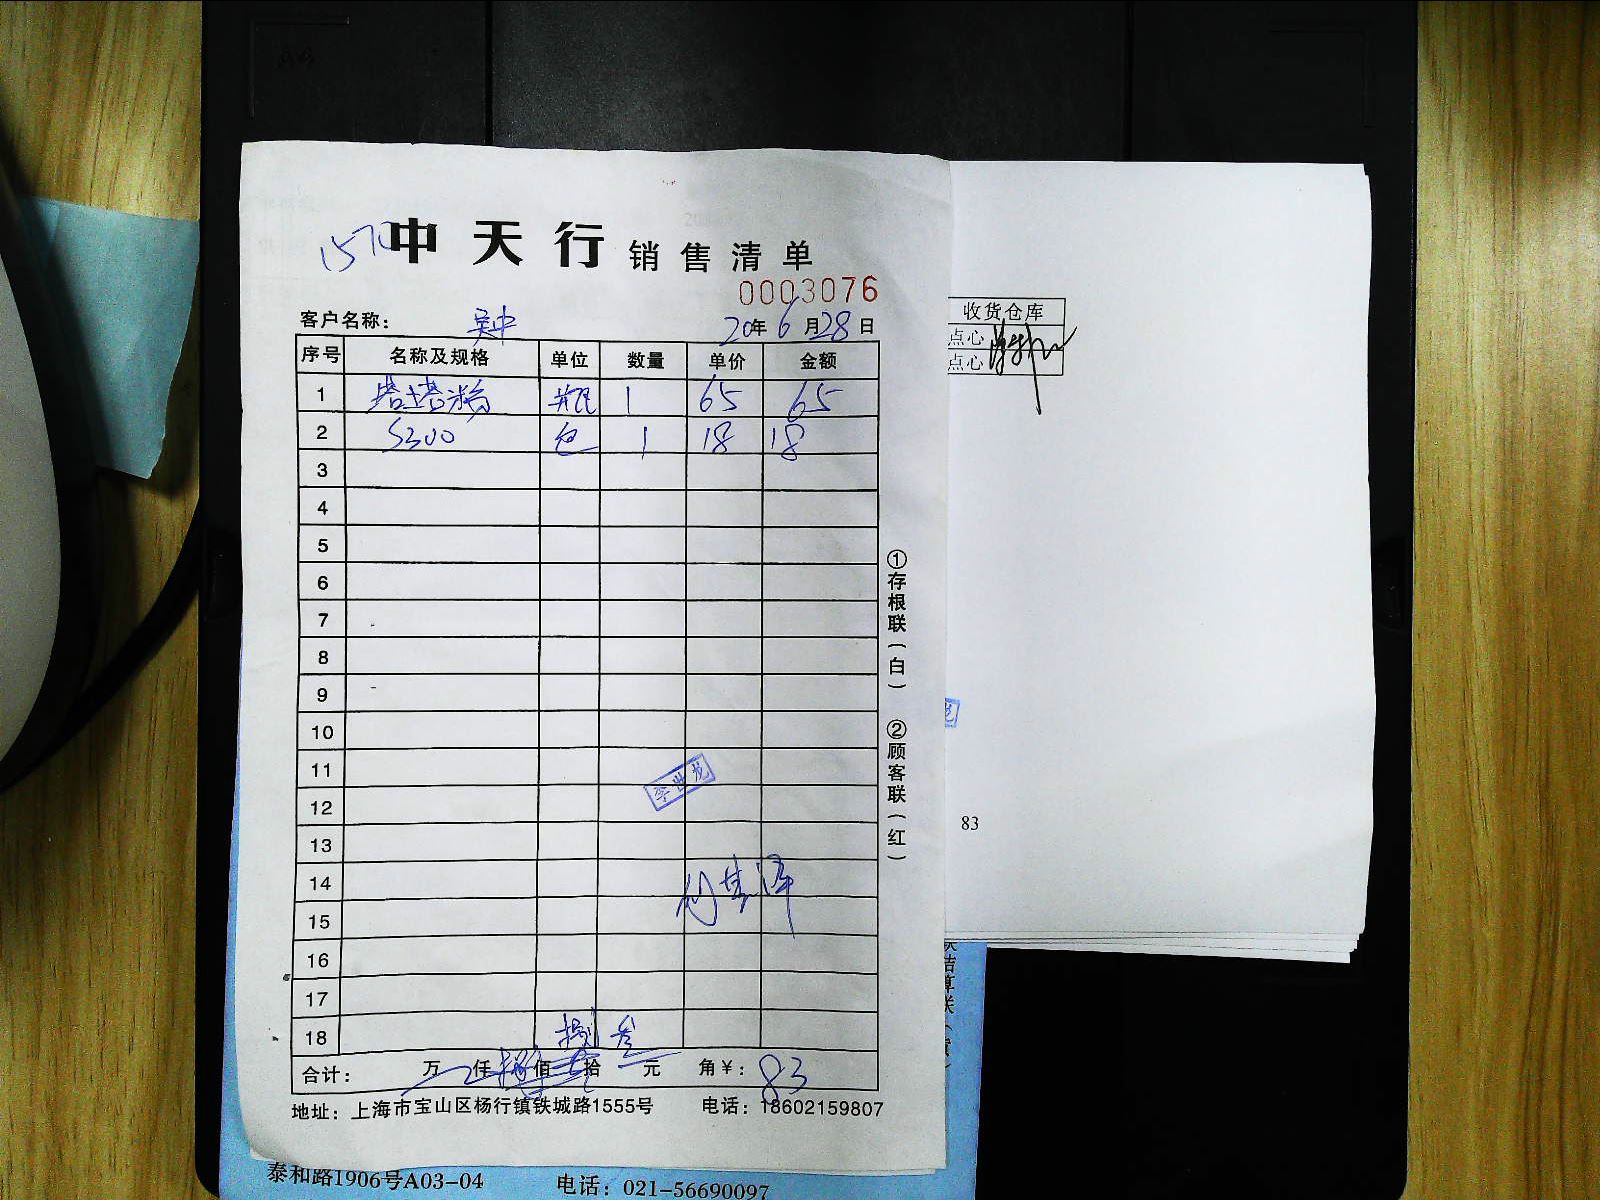 1570
中天行 销售清单
0003076
客户名称： 吴中 20年6月28日
序号 名称及规格 单位 数量 单价 金额
1 塔塔粉 瓶 1 65 65
2 S300 包 1 18 18
3
4
5
6
7
8
9
10
11
12
13
14
15
16
17
18
李世龙
捌 叁
合计： 万 仟 佰 拾 元 角￥：83
地址：上海市宝山区杨行镇铁城路1555号 电话：18602159807
①存根联（白） ②顾客联（红）
收货仓库
点心
点心
83
泰和路1906号A03-04 电话：021-56690097